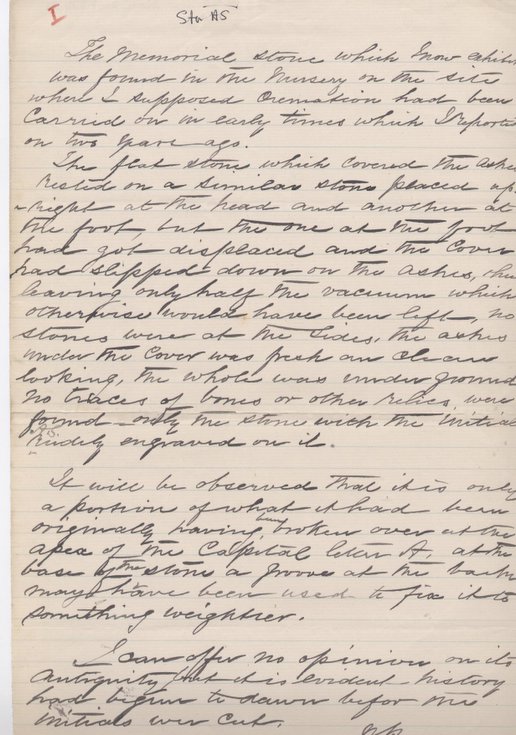 I
Sta AS
The Memorial stone which I now exhibit
was found in the Nursery on the site
where I supposed Cremation had been
Carried on in early times which I reported
on two years ago.
The flat stone which covered the ashes
rested on a similar stone placed up-
right at the head and another at
the foot but the one at the foot
had got displaced and the Cover
had slipped down on the ashes, thus
leaving only half the vacuum which
otherwise would have been left, no
stones were at the sides, the ashes
under the Cover was fresh an clean
looking, the whole was under ground
no traces of bones or other relics were
found only the stone with the initials
rudely engraved on it.
It will be observed that it is only
a portion of what it had been
originally, having been broken over at the
apex of the Capital letter A. at the
base of the stone a groove at the back
may have been used to fix it to
something weightier.
I can offer no opinion on its
antiquity but it is evident history
had begun to dawn befor the
initials wer cut.